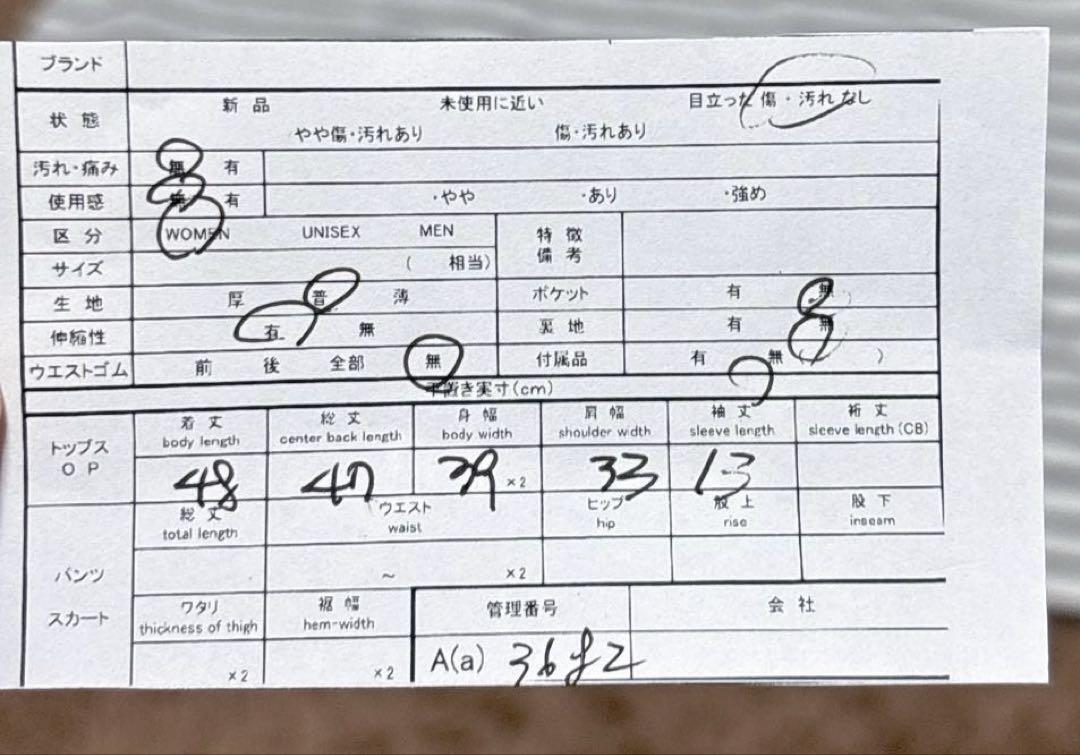 ブランド
状態 新品 未使用に近い 目立った傷・汚れなし
やや傷・汚れあり 傷・汚れあり
汚れ・痛み 無 有
使用感 無 有 ・やや ・あり ・強め
区分 WOMEN UNISEX MEN 特徴
備考
サイズ ( 相当)
生地 厚 普 薄 ポケット 有 無
伸縮性 有 無 裏地 有 無
ウエストゴム 前 後 全部 無 付属品 有 無 ( )
平置き実寸(cm)
トップス
OP
着丈 総丈 身幅 肩幅 袖丈 裄丈
body length center back length body width shoulder width sleeve length sleeve length (CB)
48 47 39 ×2 33 13
パンツ
スカート
総丈 ウエスト ヒップ 股上 股下
total length waist hip rise inseam
~ ×2
ワタリ 裾幅 管理番号 会社
thickness of thigh hem-width
×2 ×2 A(a)